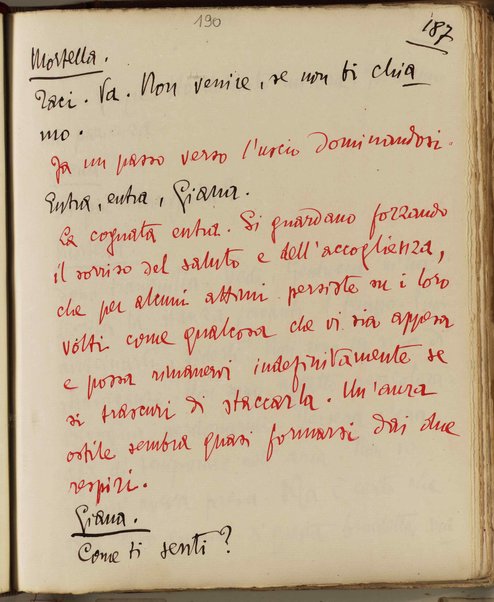 190
187
Mortella.
Taci. Va. Non venire, se non ti chia
mo.
Fa un passo verso l'uscio dominandosi.
Entra, entra, Giana.
La cognata entra. Si guardano forzando
il sorriso del saluto e dell'accoglienza,
che per alcuni attimi persiste su i loro
vólti come qualcosa che vi sia appesa
e possa rimanervi indefinitamente se
si trascuri di staccarla. Un'aura
ostile sembra quasi formarsi dai due
respiri.
Giana.
Come ti senti?